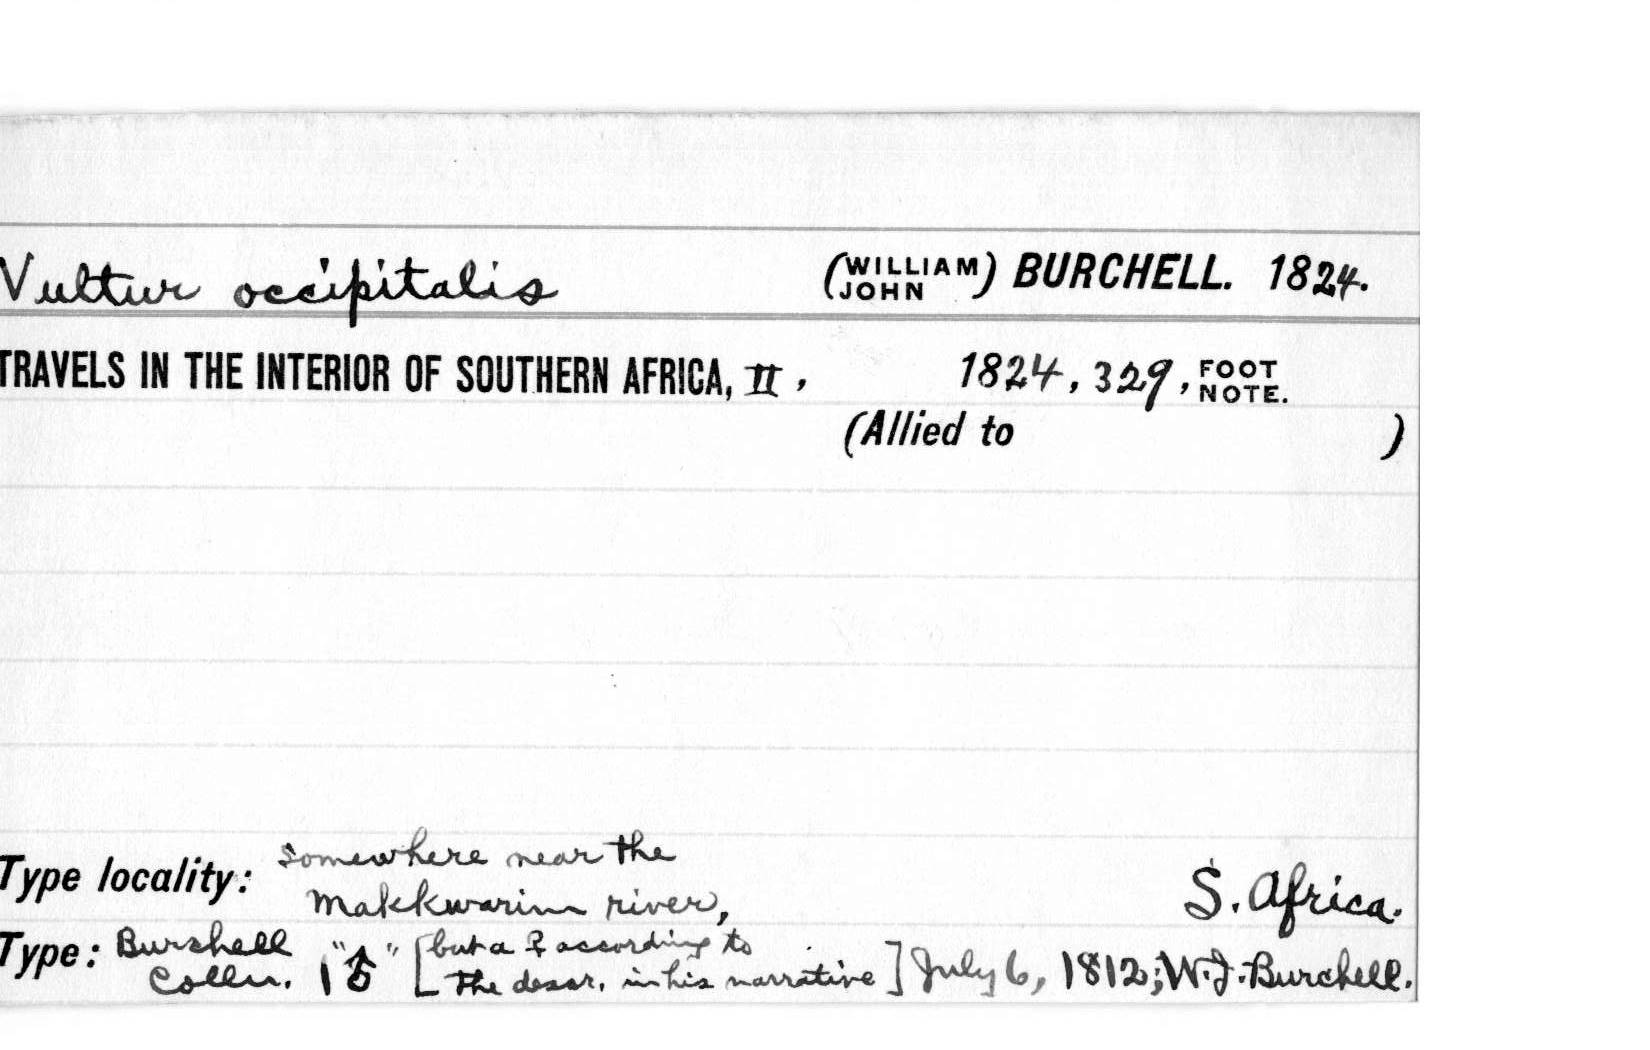 Vultur occipitalis (WILLIAM JOHN) BURCHELL. 1824.
TRAVELS IN THE INTERIOR OF SOUTHERN AFRICA, II, 1824, 329, FOOT NOTE.
(Allied to )
Type locality: somewhere near the
Makkwarin river, S. Africa.
Type: Burchell Colln. 1 "♂" [but a ♀ according to
the descr. in his narrative] July 6, 1812; W. J. Burchell.